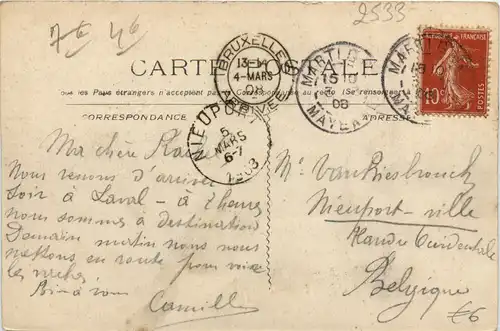 2533
7€ 4€
CARTE POSTALE
Tous les Pays étrangers n'acceptent pas la Correspondance au recto (Se renseigner
CORRESPONDANCE
ADRESSE
BRUXELLES
13-14
4-MARS
08
ARRIVEE
MARTIGNE
15 10
08
MAYENNE
NIEUPORT
5
MARS
6-7
1908
FRANÇAISE
10c
Ma chère
Nous venons d'arriver
soir à Laval - à 7 heures
nous sommes à destination
Demain matin nous nous
mettons en route pour voir
les
Bien à vous
Camille
Mr Van Riesbrouck
Nieuport-ville
Flandre Occidentale
Belgique
€6